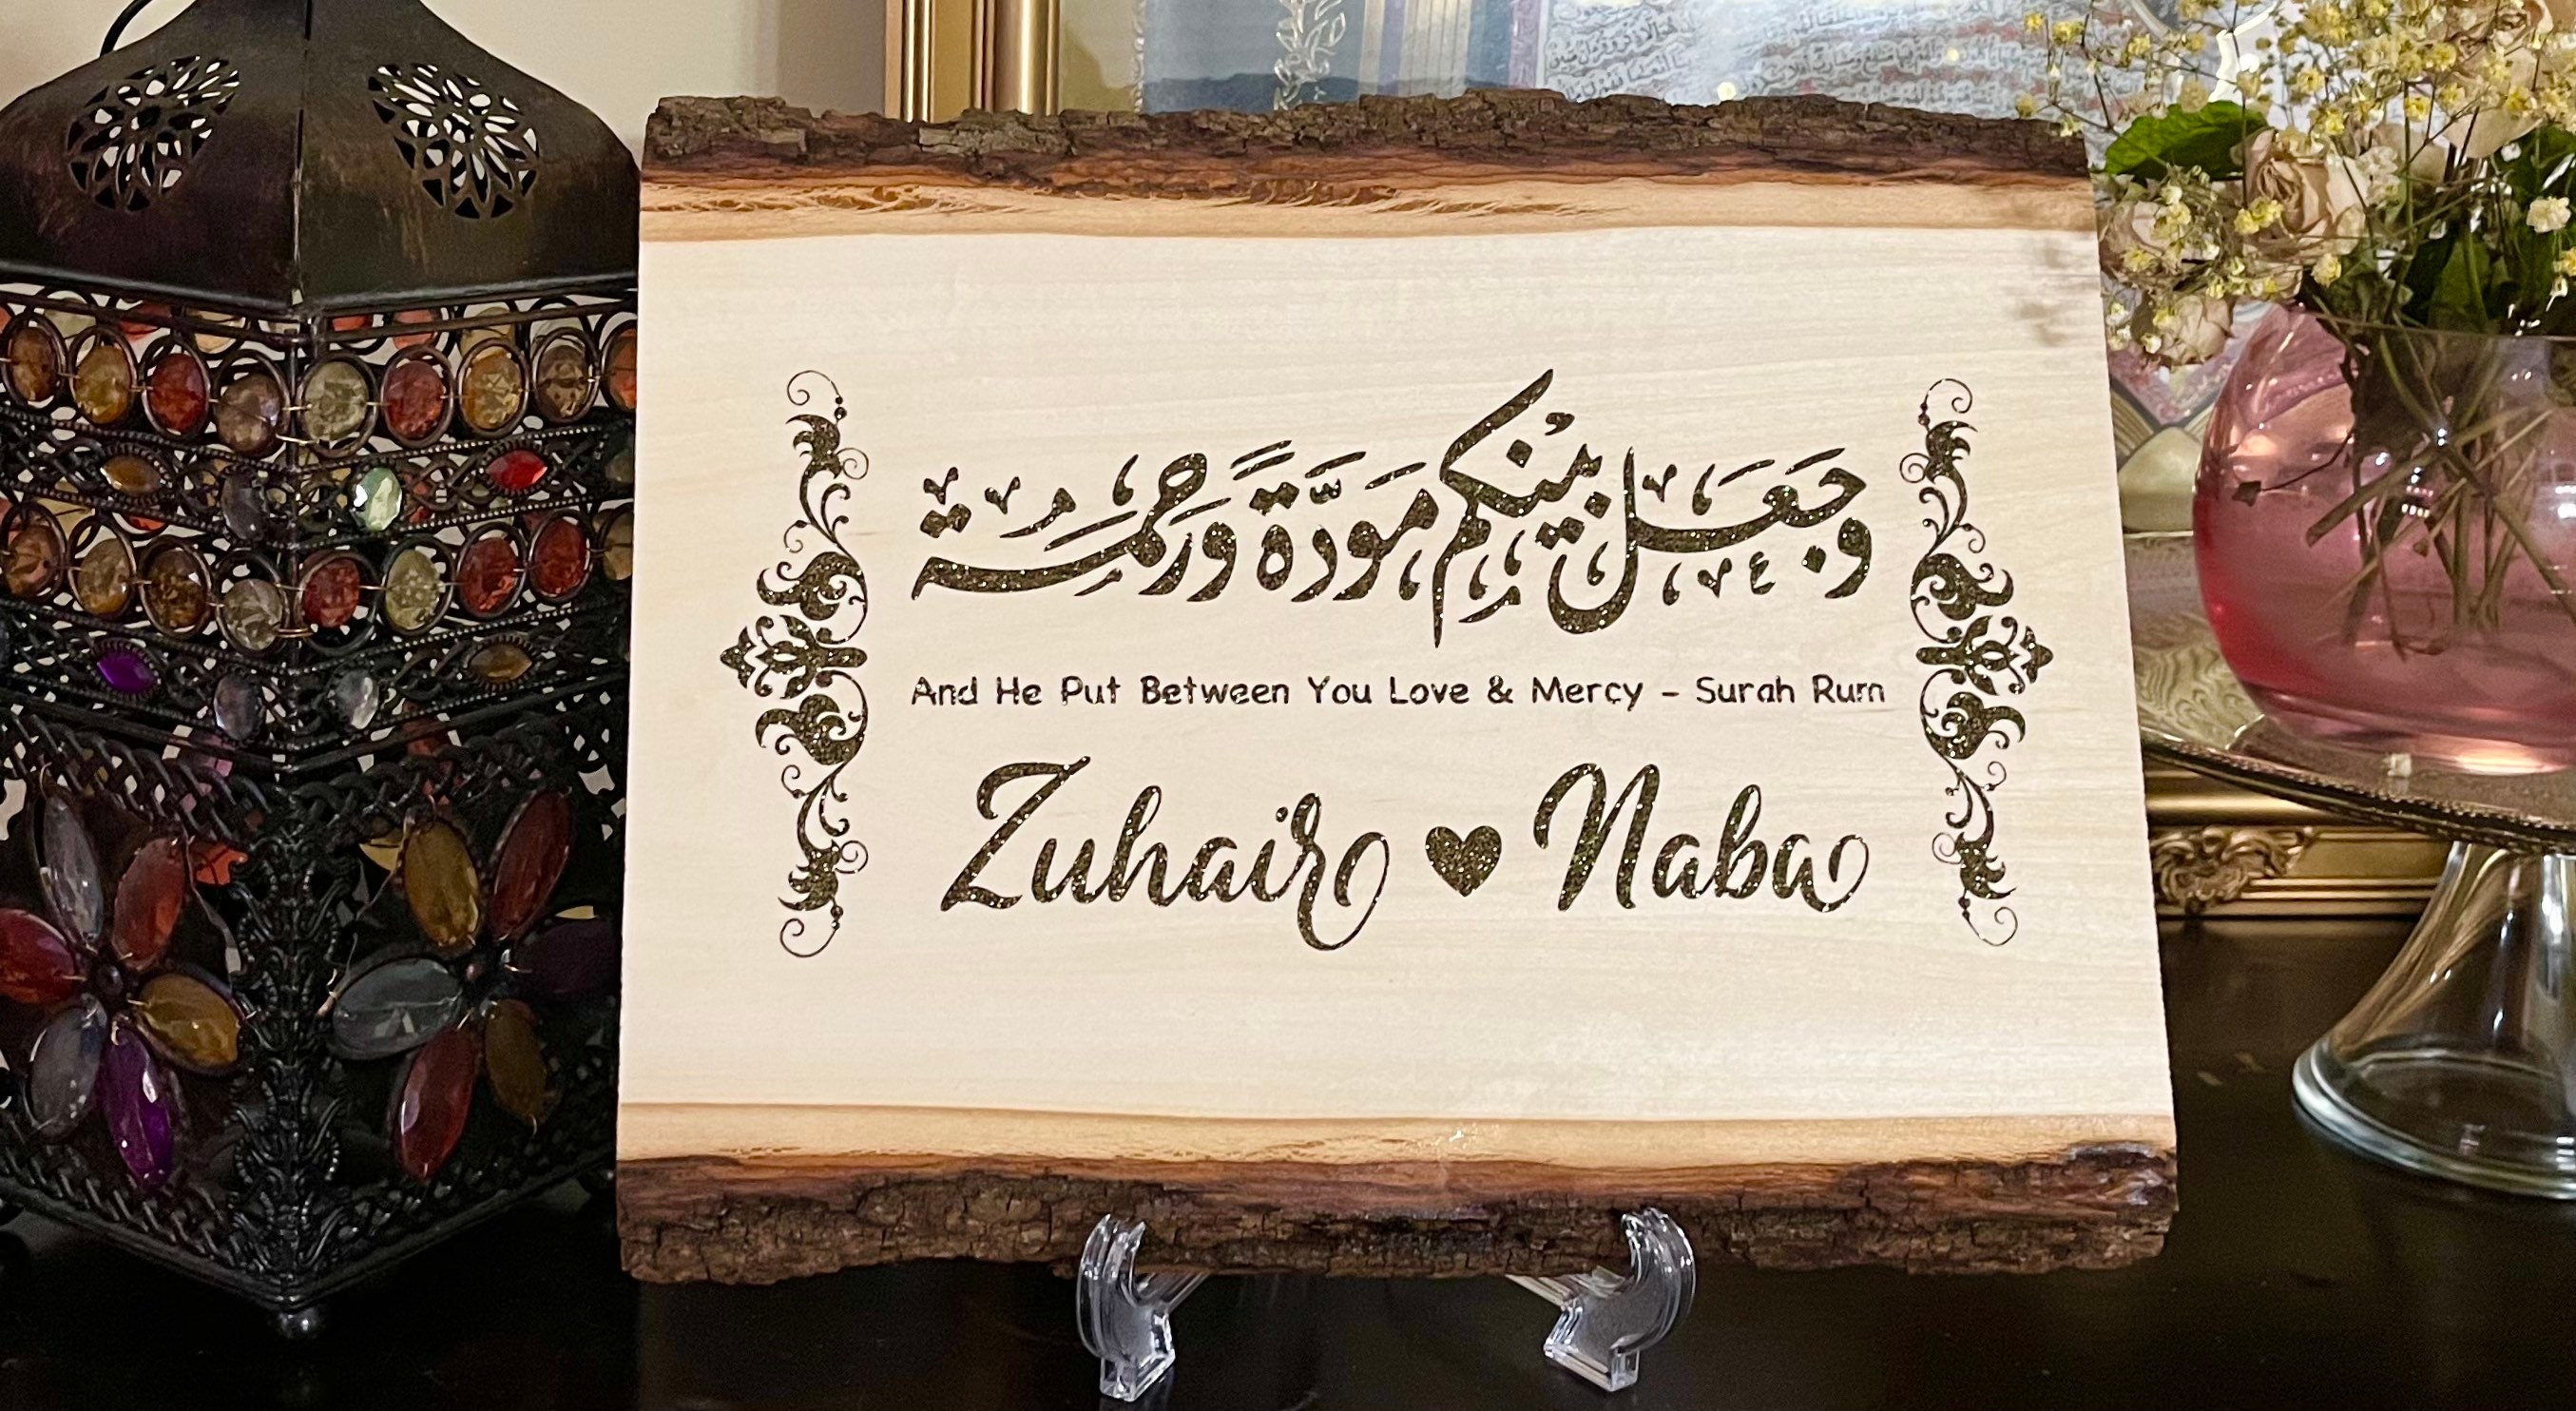 وَجَعَلَ بَيْنَكُم مَوَدَّةً وَرَحْمَة
And He Put Between You Love & Mercy - Surah Rum
Zuhair ♥ Naba